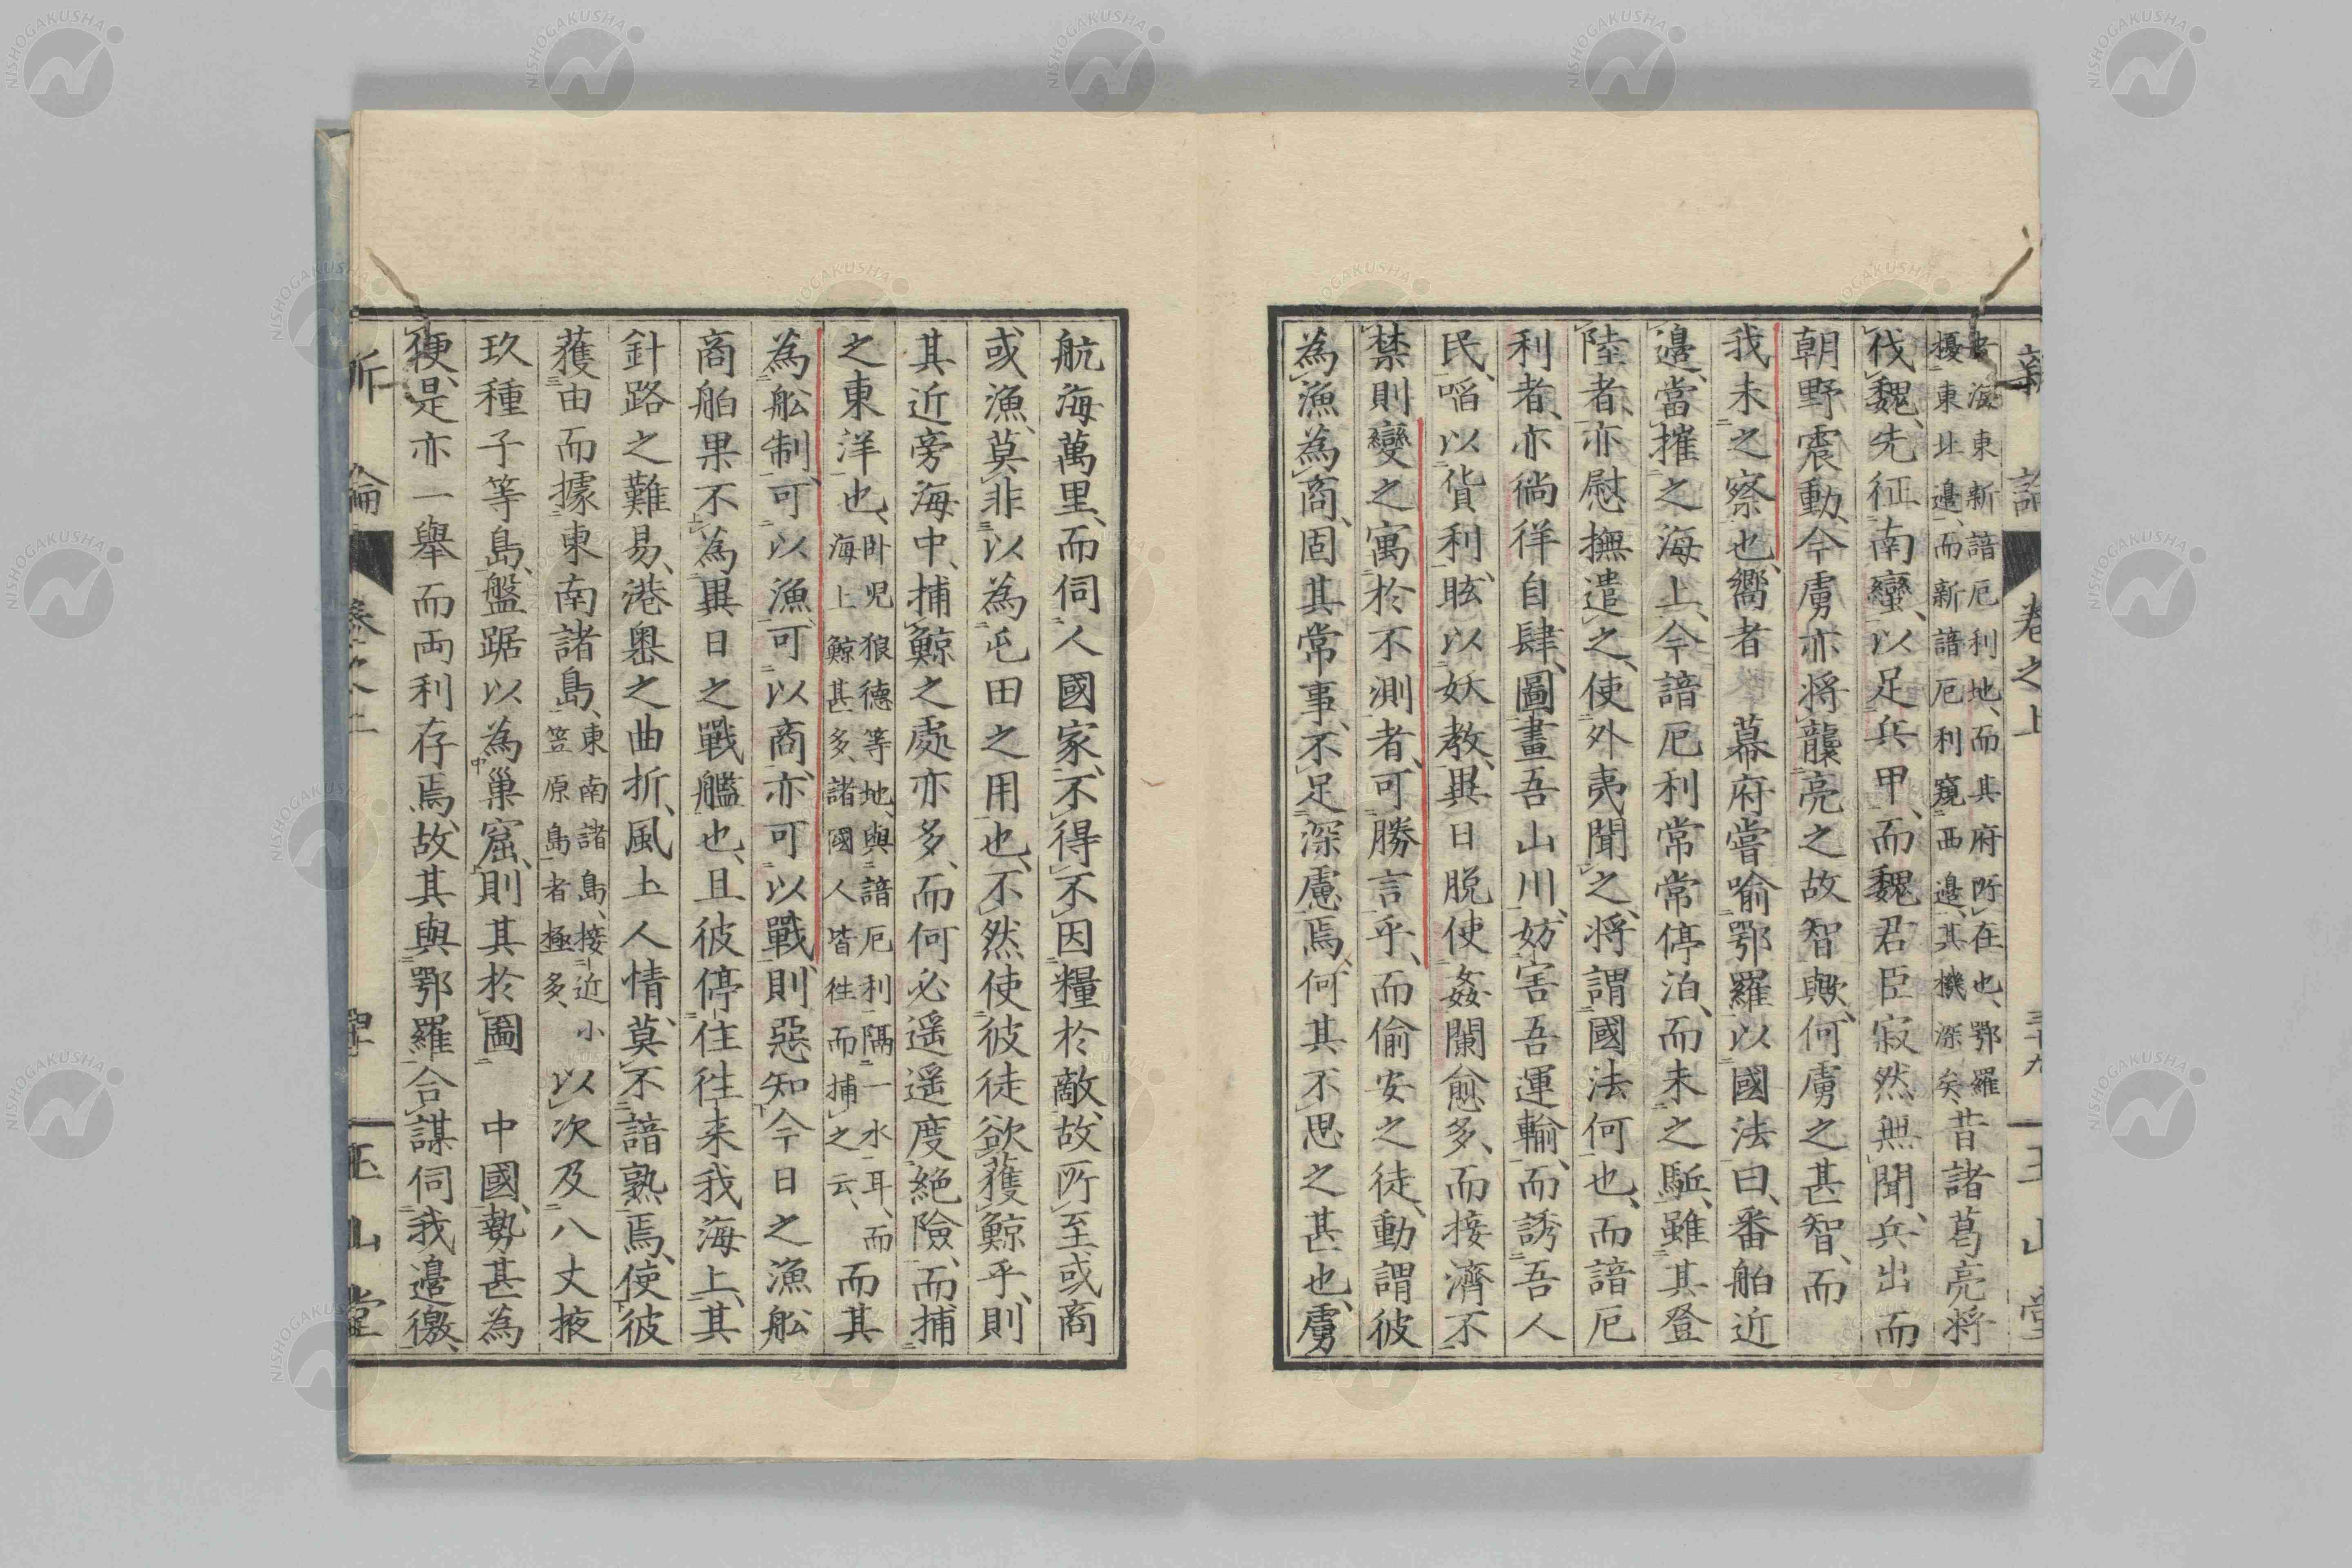 新論 卷之上 三十九 玉山堂
海東新諳厄利地、而其府所在也、鄂羅
擾東北邊、而新諳厄利窺西邊、其機深矣、昔諸葛亮將
伐魏、先征南蠻、以足兵甲、而魏君臣寂然無聞、兵出而
朝野震動、今虜亦將襲亮之故智歟、何虜之甚智、而
我未之察也、嚮者 幕府嘗喻鄂羅以國法曰、番舶近
邊、當摧之海上、今諳厄利常常停泊、而未之駈、雖其登
陸者、亦慰撫遣之、使外夷聞之、將謂國法何也、而諳厄
利者、亦徜徉自肆、圖畫吾山川、妨害吾運輸、而誘吾人
民、啗以貨利、眩以妖教、異日脫使姦闌愈多、而接濟不
禁則變之寓於不測者、可勝言乎、而偷安之徒、動謂彼
為漁為商、固其常事、不足深慮焉、何其不思之甚也、虜
航海萬里、而伺人國家、不得不因糧於敵、故所至或商
或漁、莫非以為屯田之用也、不然使彼徒欲獲鯨乎、則
其近旁海中、捕鯨之處亦多、而何必遥遥度絕險、而捕
之東洋也、臥兒狼德等地、與諳厄利隔一水耳、而
海上鯨甚多、諸國人皆往而捕之云、而其
為舩制、可以漁、可以商、亦可以戰、則惡知今日之漁舩
商舶果不為異日之戰艦也、且彼停住往来我海上、其
針路之難易、港嶴之曲折、風土人情、莫不諳熟焉、使彼
獲由而據東南諸島、東南諸島、接近小
笠原島者極多、以次及八丈掖
玖種子等島、盤踞以為巢窟、則其於圖 中國、勢甚為
便、是亦一舉而両利存焉、故其與鄂羅合謀伺我邊徼、
論 卷之上 四十 玉山堂